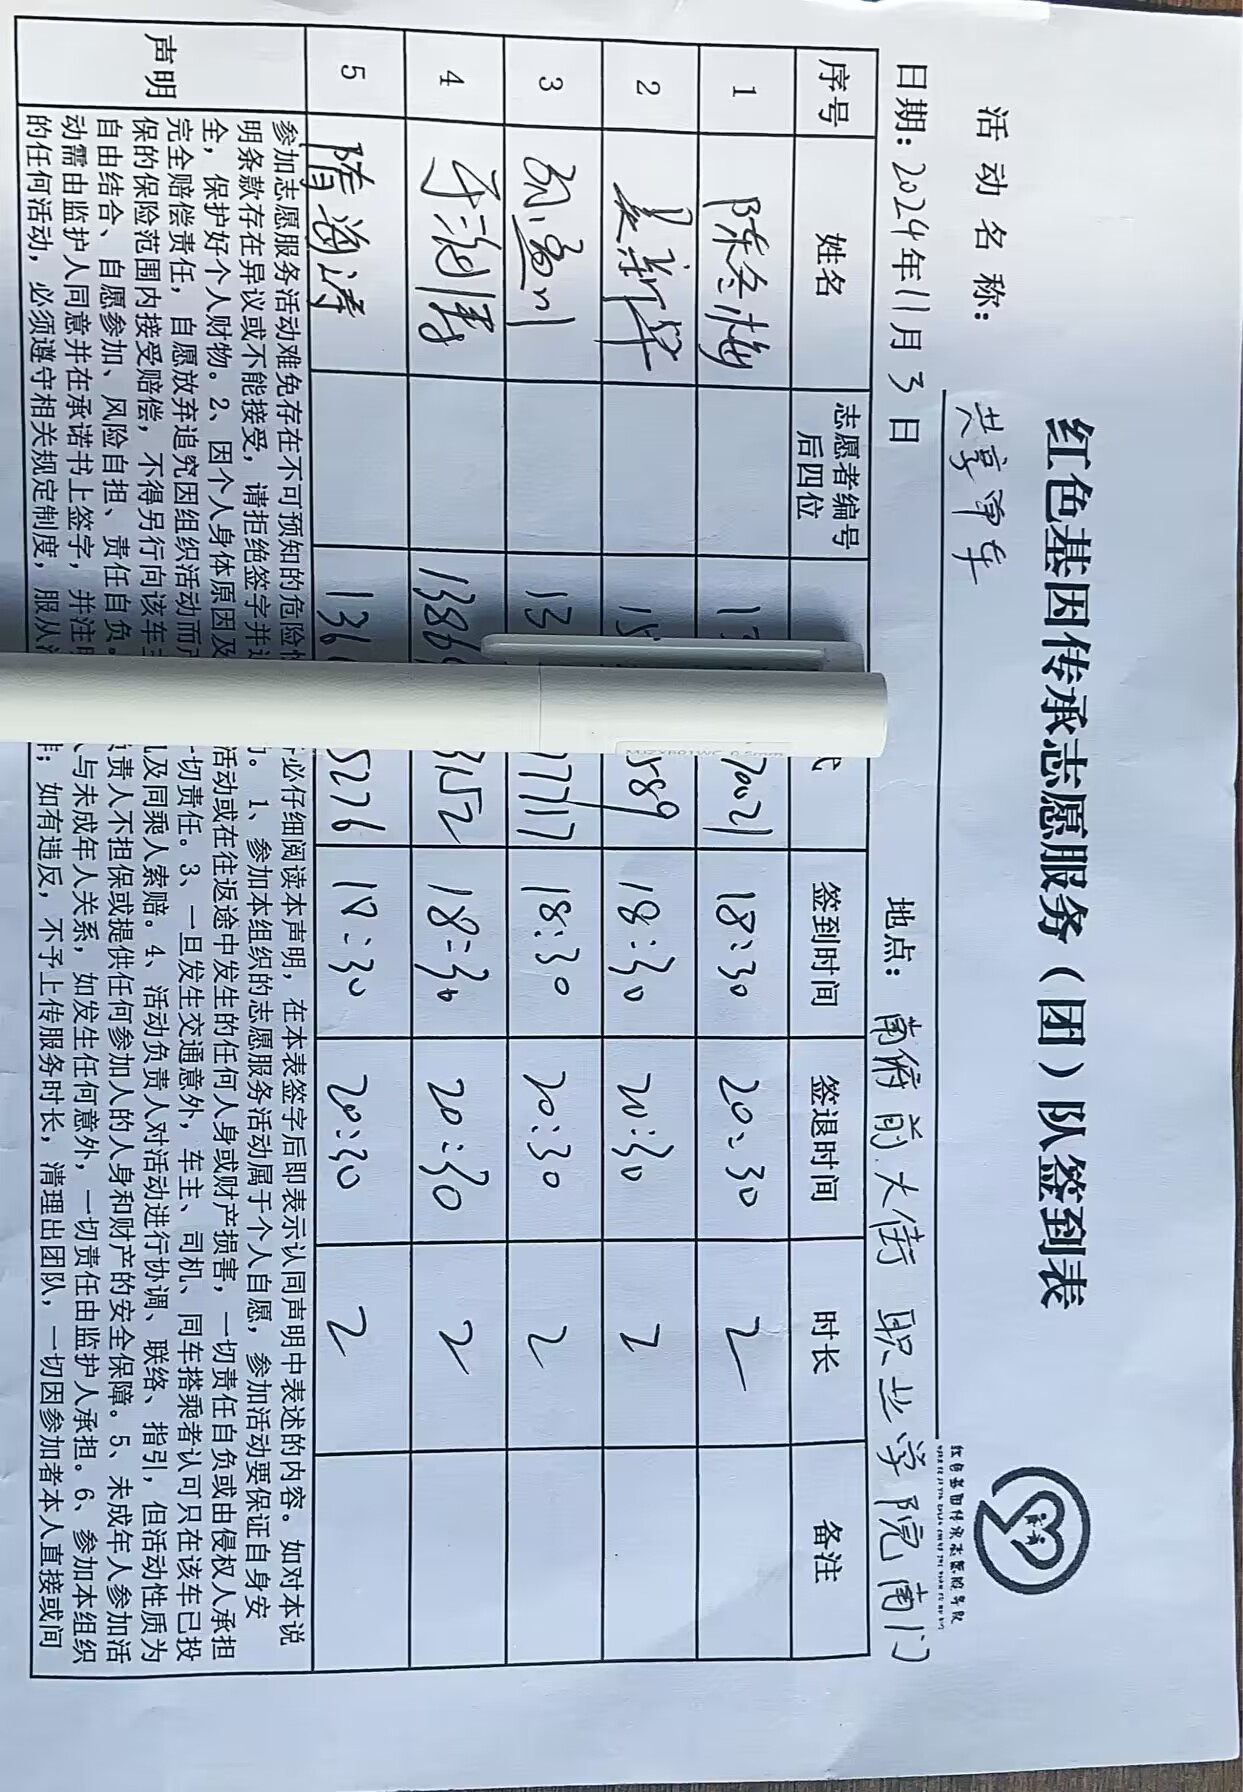 红色基因传承志愿服务（团）队签到表
活动名称： 共享单车
日期：2024年11月3日 地点： 南府前大街 职业学院南门
序号 姓名 志愿者编号后四位 式 签到时间 签退时间 时长 备注
1 陈冬梅 70021 18:30 20:30 2
2 589 18:30 20:30 2
3 13 77717 18:30 20:30 2
4 1386 3152 18:30 20:30 2
5 隋海涛 136 5276 18:30 20:30 2
声明
参加志愿服务活动难免存在不可预知的危险性 必仔细阅读本声明，在本表签字后即表示认同声明中表述的内容。如对本说
明条款存在异议或不能接受，请拒绝签字并 。1、参加本组织的志愿服务活动属于个人自愿，参加活动要保证自身安
全，保护好个人财物。2、因个人身体原因及 活动或在往返途中发生的任何人身或财产损害，一切责任自负或由侵权人承担
完全赔偿责任，自愿放弃追究因组织活动而 一切责任。3、一旦发生交通意外，车主、司机、同车搭乘者认可只在该车已投
保的保险范围内接受赔偿，不得另行向该车 及同乘人索赔。4、活动负责人对活动进行协调、联络、指引，但活动性质为
自由结合、自愿参加、风险自担、责任自负。 责人不担保或提供任何参加人的人身和财产的安全保障。5、未成年人参加活
动需由监护人同意并在承诺书上签字，并注 与未成年人关系，如发生任何意外，一切责任由监护人承担。6、参加本组织
的任何活动，必须遵守相关规定制度，服从 ；如有违反，不予上传服务时长，清理出团队，一切因参加者本人直接或间